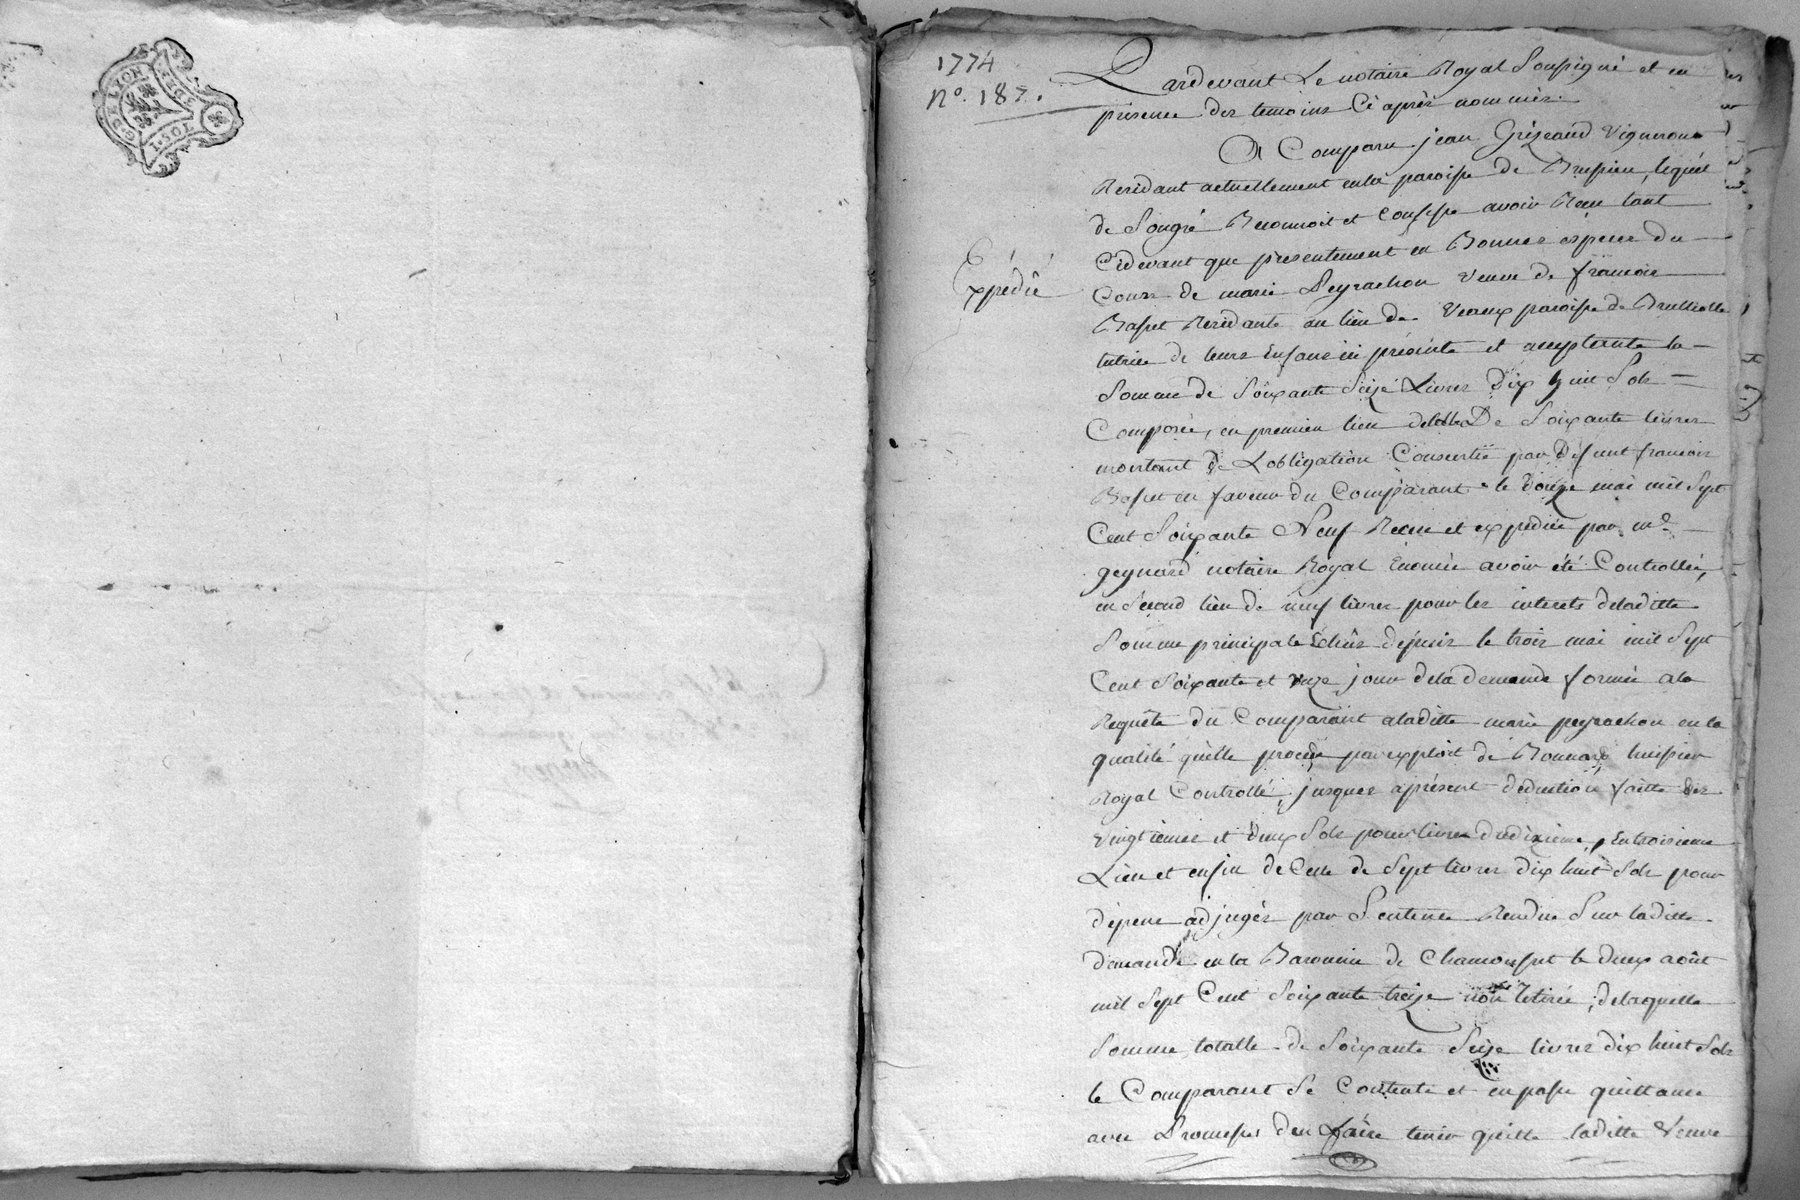 G. DE LYON
1. SOL
1774
N°. 187.
Pardevant Le notaire Royal Soussigné et en
presence des temoins Cy après nommés.
A Comparu jean Grézaud Vigneron
Residant actuellement en la paroisse de Brussieu, lequel
de Songré Reconnoit et Confesse avoir Reçu tant
Cidevant que présentement en Bonnes especes du
Expédié
Cours de marie Peyrachon Veuve de francois
Basset Residante au lieu de Veaux paroisse de Brullioles
tutrice de leurs Enfans ici présente et acceptante la
Somme de Soixante Seize Livres dix huit Sols
Composée, en premier lieu de Celle De Soixante livres
montant de Lobligation Consentie par Défunt francois
Basset en faveur du Comparant le douze mai mil Sept
Cent Soixante Neuf Recue et expediée par me
geynard notaire Royal Enoncée avoir été Controllée,
en Second lieu de neuf livres pour les interets deladitte
Somme principale Echûs depuis le trois mai mil Sept
Cent Soixante et onze jour dela demande formée ala
Requête du Comparant aladitte marie peyrachon en la
qualité quelle procéde par exploit de Bonnard huissier
Royal Controllé, jusques aprésent déduction faitte des
Vingtiemes et deux Sols pour livre du dixieme, Entroisieme
Lieu et enfin de Celle de Sept livres dix huit Sols pour
dépens adjugés par Sentence Rendue Sur laditte
demande en la Baronnie de Chamousset le deux août
mil Sept Cent Soixante treize non retirée, delaquelle
Somme totalle de Soixante Seize livres dix huit Sols
le Comparant Se Contente et en passe quittance
avec Promesses den faire tenir quitte laditte Veuve